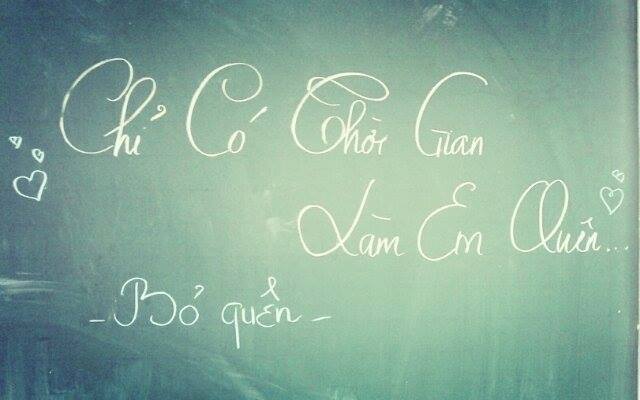 Chỉ Có Thời Gian
Làm Em Quên...
- Bỏ quền -